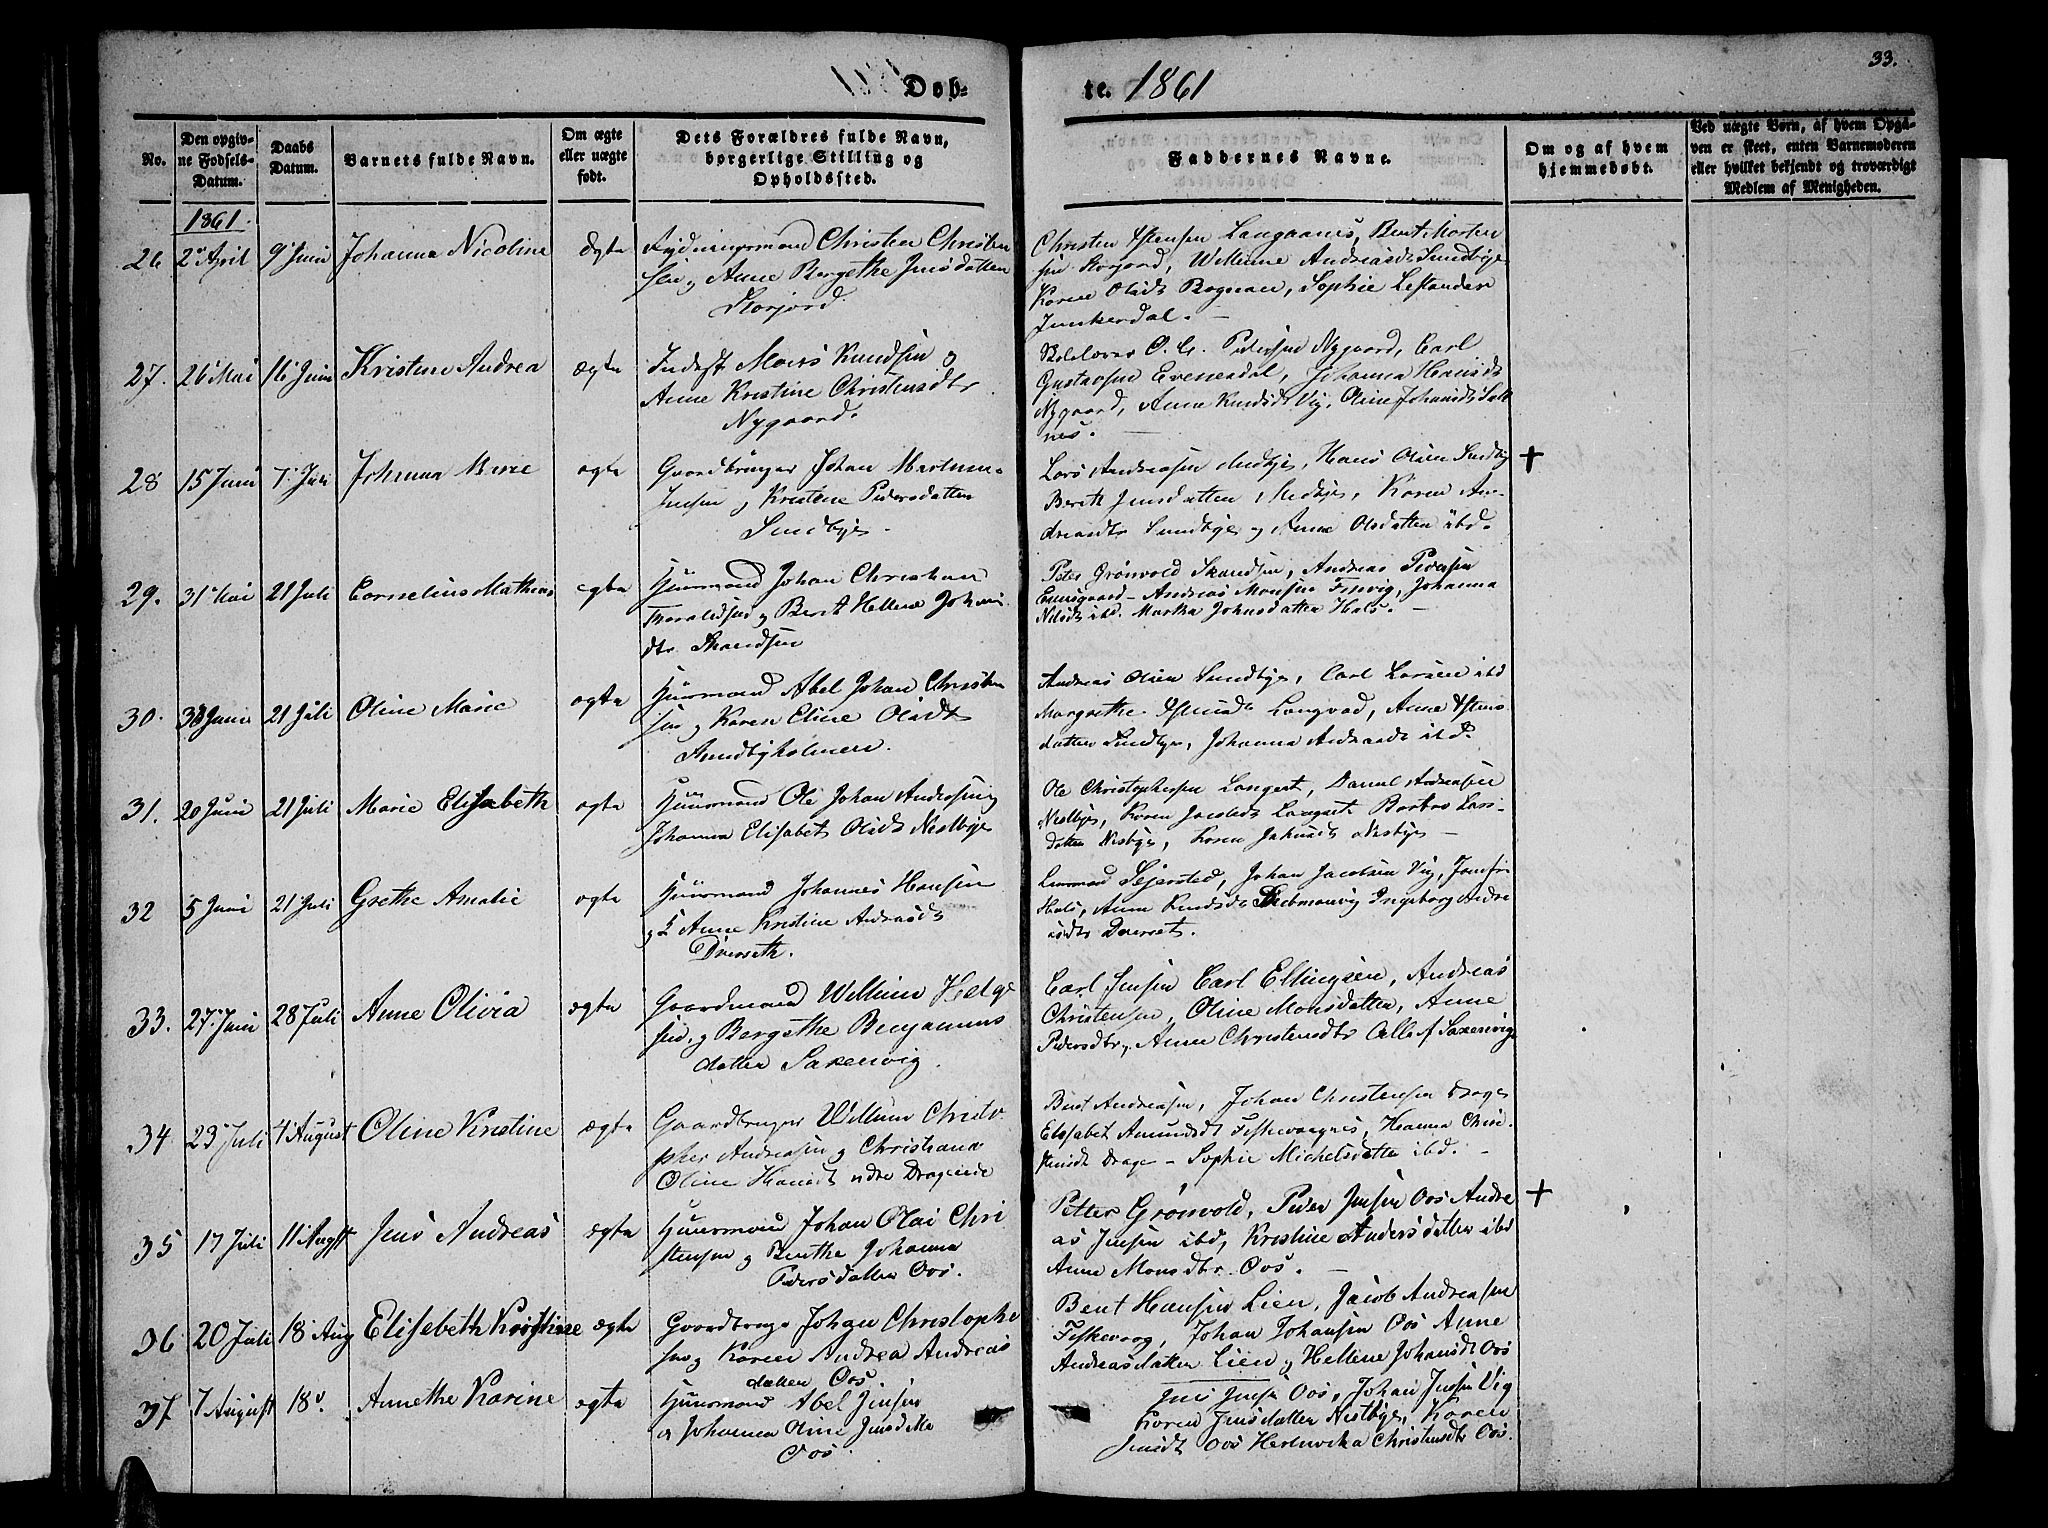 33.
Døb-
te. 1861
No.
Den opgiv-
ne Fødsels-
Datum.
Daabs
Datum.
Barnets fulde Navn.
Om ægte
eller uægte
født.
Dets Forældres fulde Navn,
borgerlige Stilling og
Opholdssted.
Faddernes Navne.
Om og af hvem
hjemmedøbt.
Ved uægte Børn, af hvem Opgi-
ven er skeet, enten Barnemoderen
eller hvilket bekjendt og troværdigt
Medlem af Menigheden.
1861.
26 2 April 9 Juni Johanna Nicoline ægte
Rydningsmand Christen Christen
sen og Anne Bergethe Jensdatter
Storjord
Christen Langaanes, Bent Morten
sen Storjord, Willumine Andreasd. Sundbye
Karen Olsd. Sophie
Junkerdal.
27. 26 Mai 16 Juni Kristine Andrea ægte
Inderst Knudsen og
Anne Kristine Christensdtr
Nygaard.
Skolelærer O. C. Pedersen Nygaard, Carl
Gustavsen Evenesdal, Johanna Hansd.
Nygaard, Anne Knudsd. Vig, Oline Johansd. Salt
nes.
28 15 Juni 7 Juli Johanna ægte
Gaardbruger Johan Martinus
Jensen og Kristine Pedersdatter
Sundbye.
Lars Andreassen Hans Olsen Sundby
Berith Jensdatter Karen An-
dreasdtr Sundbye og Anne Olsdatter ibd.
+
29. 31 Mai 21 Juli Cornelius Mathias ægte
Huusmand Johan Christian
Thoraldsen og Berit Helene Johans
dtr Skandsen
Peter Grönvold Skandsen, Andreas Pedersen
Evensgaard - Andreas Monsen Johanna
Nilsd. ibd. Martha Johnsdatter Hals.
30. 30 Juni 21 Juli Oline Marie ægte
Huusmand Abel Johan Christen
sen og Karen Eline Olsdt
Sundbyholmen.
Andreas Olsen Sundbye, Carl Larsen ibd
Margrethe Langvad, Anne
datter Sundbye, Johanna Andreasd. ibd.
31. 20 Juni 21 Juli Marie Elisabeth ægte
Huusmand Ole Johan Andersen og
Johanna Elisabet Olsd. Nestbye
Ole Christophersen Langset, Daniel Andreasen
Nestbye, Karen Langset Lars-
datter Nesbye, Karen Nesbye -
32 5 Juni 21 Juli Grethe Amalie ægte
Huusmand Johannes Hansen
og Anne Kristine Andreasdt
Drevseth.
Sejersted, Johan Jacobsen Vig,
Hals, Anne Knudsd. Ingeborg Andre
asdtr Drevset.
33. 27 Juni 28 Juli Anne Olivia ægte
Gaardmand Willum Helge
sen og Bergethe Benjamins
datter Saxenvig.
Carl Jensen Carl Ellingsen, Andreas
Christensen, Oline Monsdatter, Anne
Pedersdtr, Anne Christensdtr Alle af Saxenvig
34 23 Juli 4 August Oline Kristine ægte
Gaardbruger Willum Christo
pher Andreasen og Christiana
Oline Hansdt Drageide
Bent Andreasen, Johan Christensen Drage
Elisabet Amundsdt Fiskevaagnes, Hanna Chri-
stensdt Drage - Sophie Michelsdatter ibd. -
35 17 Juli 11 Augst Jens Andreas ægte
Huusmand Johan Olai Chri
stensen og Berithe Johanna
Pedersdatter Oos.
Petter Grönvold, Peder Jensen Oos Andre
as Jensen ibd, Kristine Andersdatter ibd
Anne Monsdtr. Oos. -
+
36 20 Juli 18 Aug Elisebeth Kristine ægte
Gaardbruger Johan Christophe
sen og Karen Andrea Andreas
datter Oos.
Bent Hansen Lien, Jacob Andreasen
Fiskevaag, Johan Johansen Oos Anne
Andreasdatter Lien og Helene Johansdt Oos
37 7 August 18 Annethe Karine ægte
Huusmand Abel Jensen
og Johanna Oline Jensdatte
Oos.
Jens Jensen Oos, Johan Jensen Vig
Karen Jensdatter Nestbye, Karen
Jensdt Oos Christensdtr Oos.